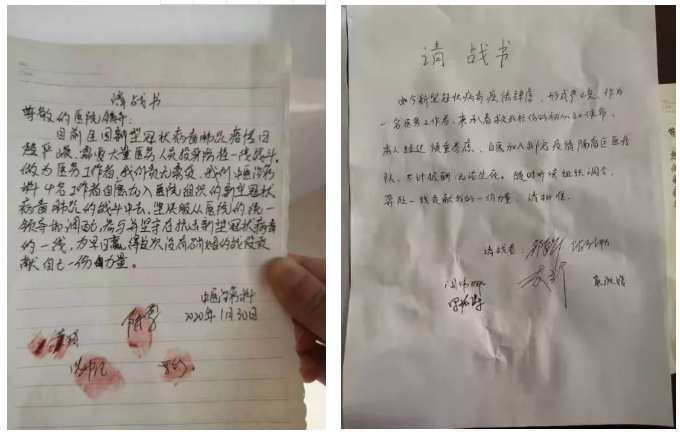 请战书
尊敬的医院领导:
目前我国新型冠状病毒肺炎疫情日
趋严峻,需要大量医务人员投身防控一线战斗。
做为医务工作者,我们责无旁贷,我们中医药
科4名工作者自愿加入医院组织的新型冠状
病毒肺炎的战斗中去,坚决服从医院的统一
领导和调配,参与并坚守在抗击新型冠状病毒
的一线,为早日赢得这次没有硝烟的战役贡
献自己一份力量。
2020年1月30日
请战书
如今新型冠状病毒疫情肆虐,形式严峻,作为
一名医务工作者,秉承着救死扶伤的初心和使命,
本人经过慎重考虑,自愿加入新冠疫情隔离区医疗
队,不计报酬,无论生死,随时听候组织调令,
奔赴一线贡献我的一份力量,请批准。
请战者: